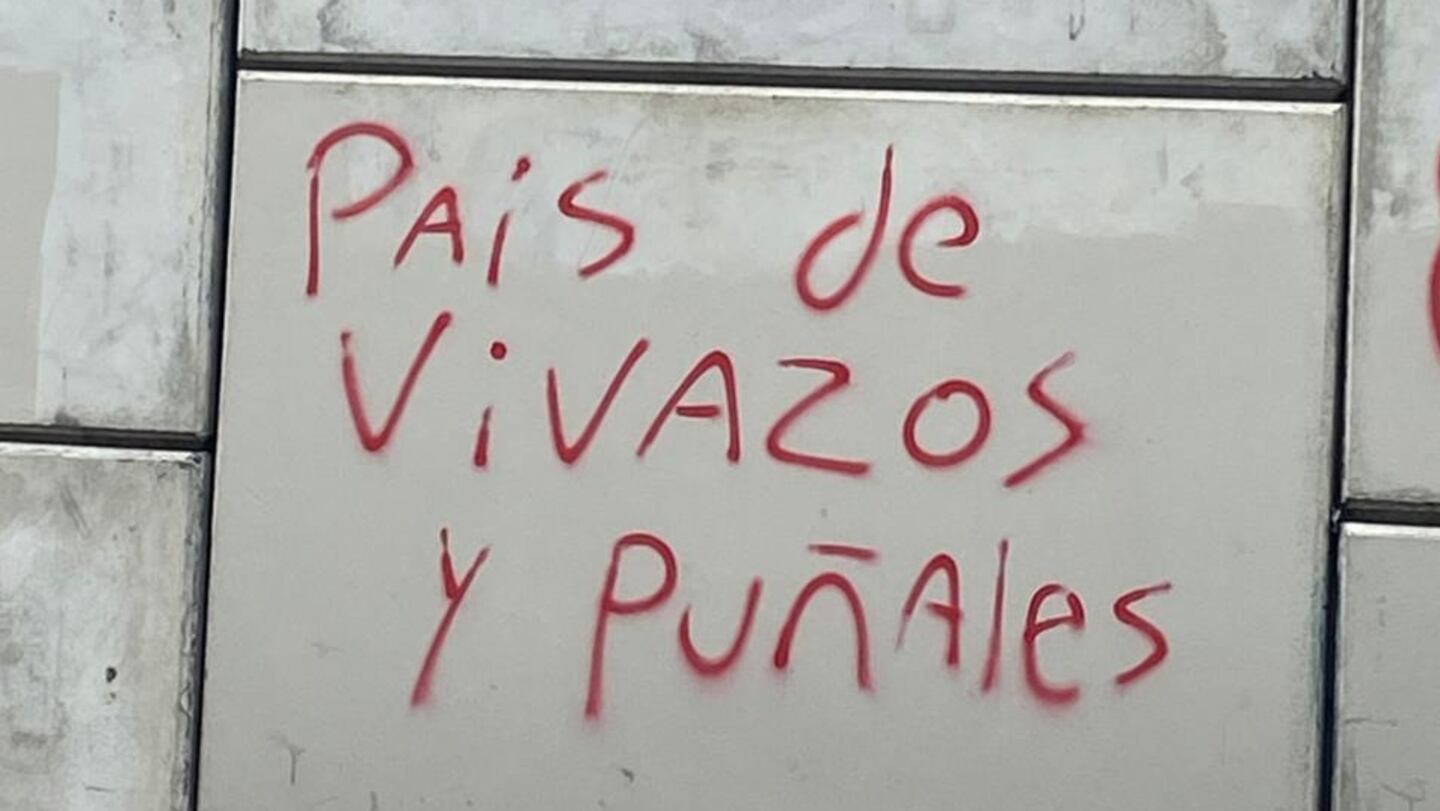 PAiS de
ViVAZOS
y PUÑAleS